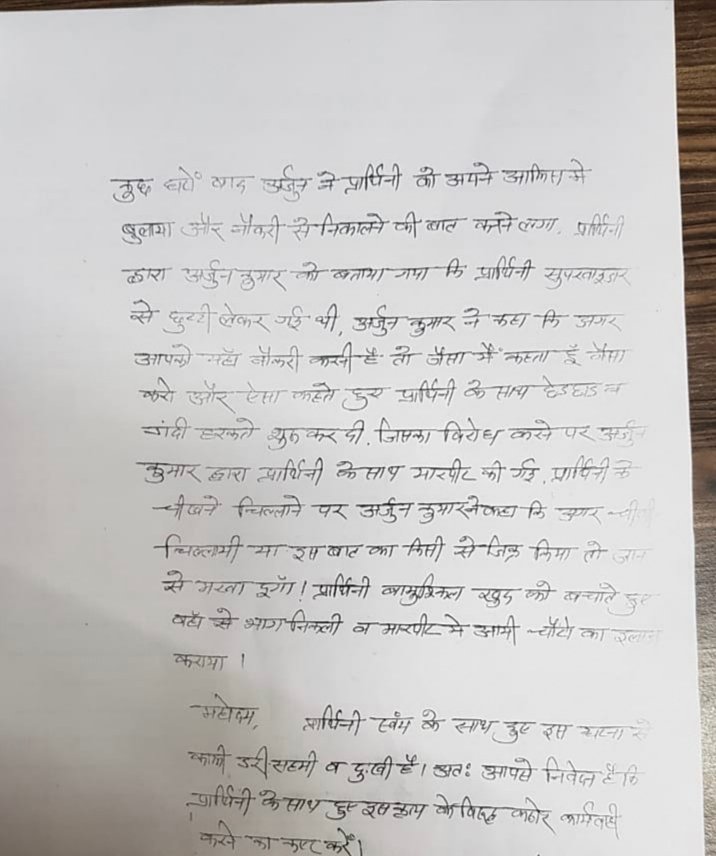 कुछ घंटों बाद अर्जुन ने प्रार्थिनी को अपने आफिस मे
बुलाया और नौकरी से निकालने की बात करने लगा, प्रार्थिनी
द्वारा अर्जुन कुमार को बताया गया कि प्रार्थिनी सुपरवाइजर
से छुट्टी लेकर गई थी, अर्जुन कुमार ने कहा कि अगर
आपको यहाँ नौकरी करनी है तो जैसा मैं कहता हूँ वैसा
करो और ऐसा कहते हुए प्रार्थिनी के साथ छेडछाड व
गंदी हरकते शुरू कर दी, जिसका विरोध करने पर अर्जुन
कुमार द्वारा प्रार्थिनी के साथ मारपीट की गई, प्रार्थिनी के
चीखने चिल्लाने पर अर्जुन कुमार ने कहा कि अगर चीखी
चिल्लायी या इस बात का किसी से जिक्र किया तो जान
से मरवा दूँगा! प्रार्थिनी बामुश्किल खुद को बचाते हुए
वहाँ से भाग निकली व मारपीट मे आयी चोटों का इलाज
कराया ।
महोदय, प्रार्थिनी स्वंम के साथ हुए इस घटना से
काफी डरी सहमी व दुःखी है। अतः आपसे निवेदन है कि
प्रार्थिनी के साथ हुए इस कृत्य के विरूद्ध कठोर कार्यवाही
करने का कष्ट करें।